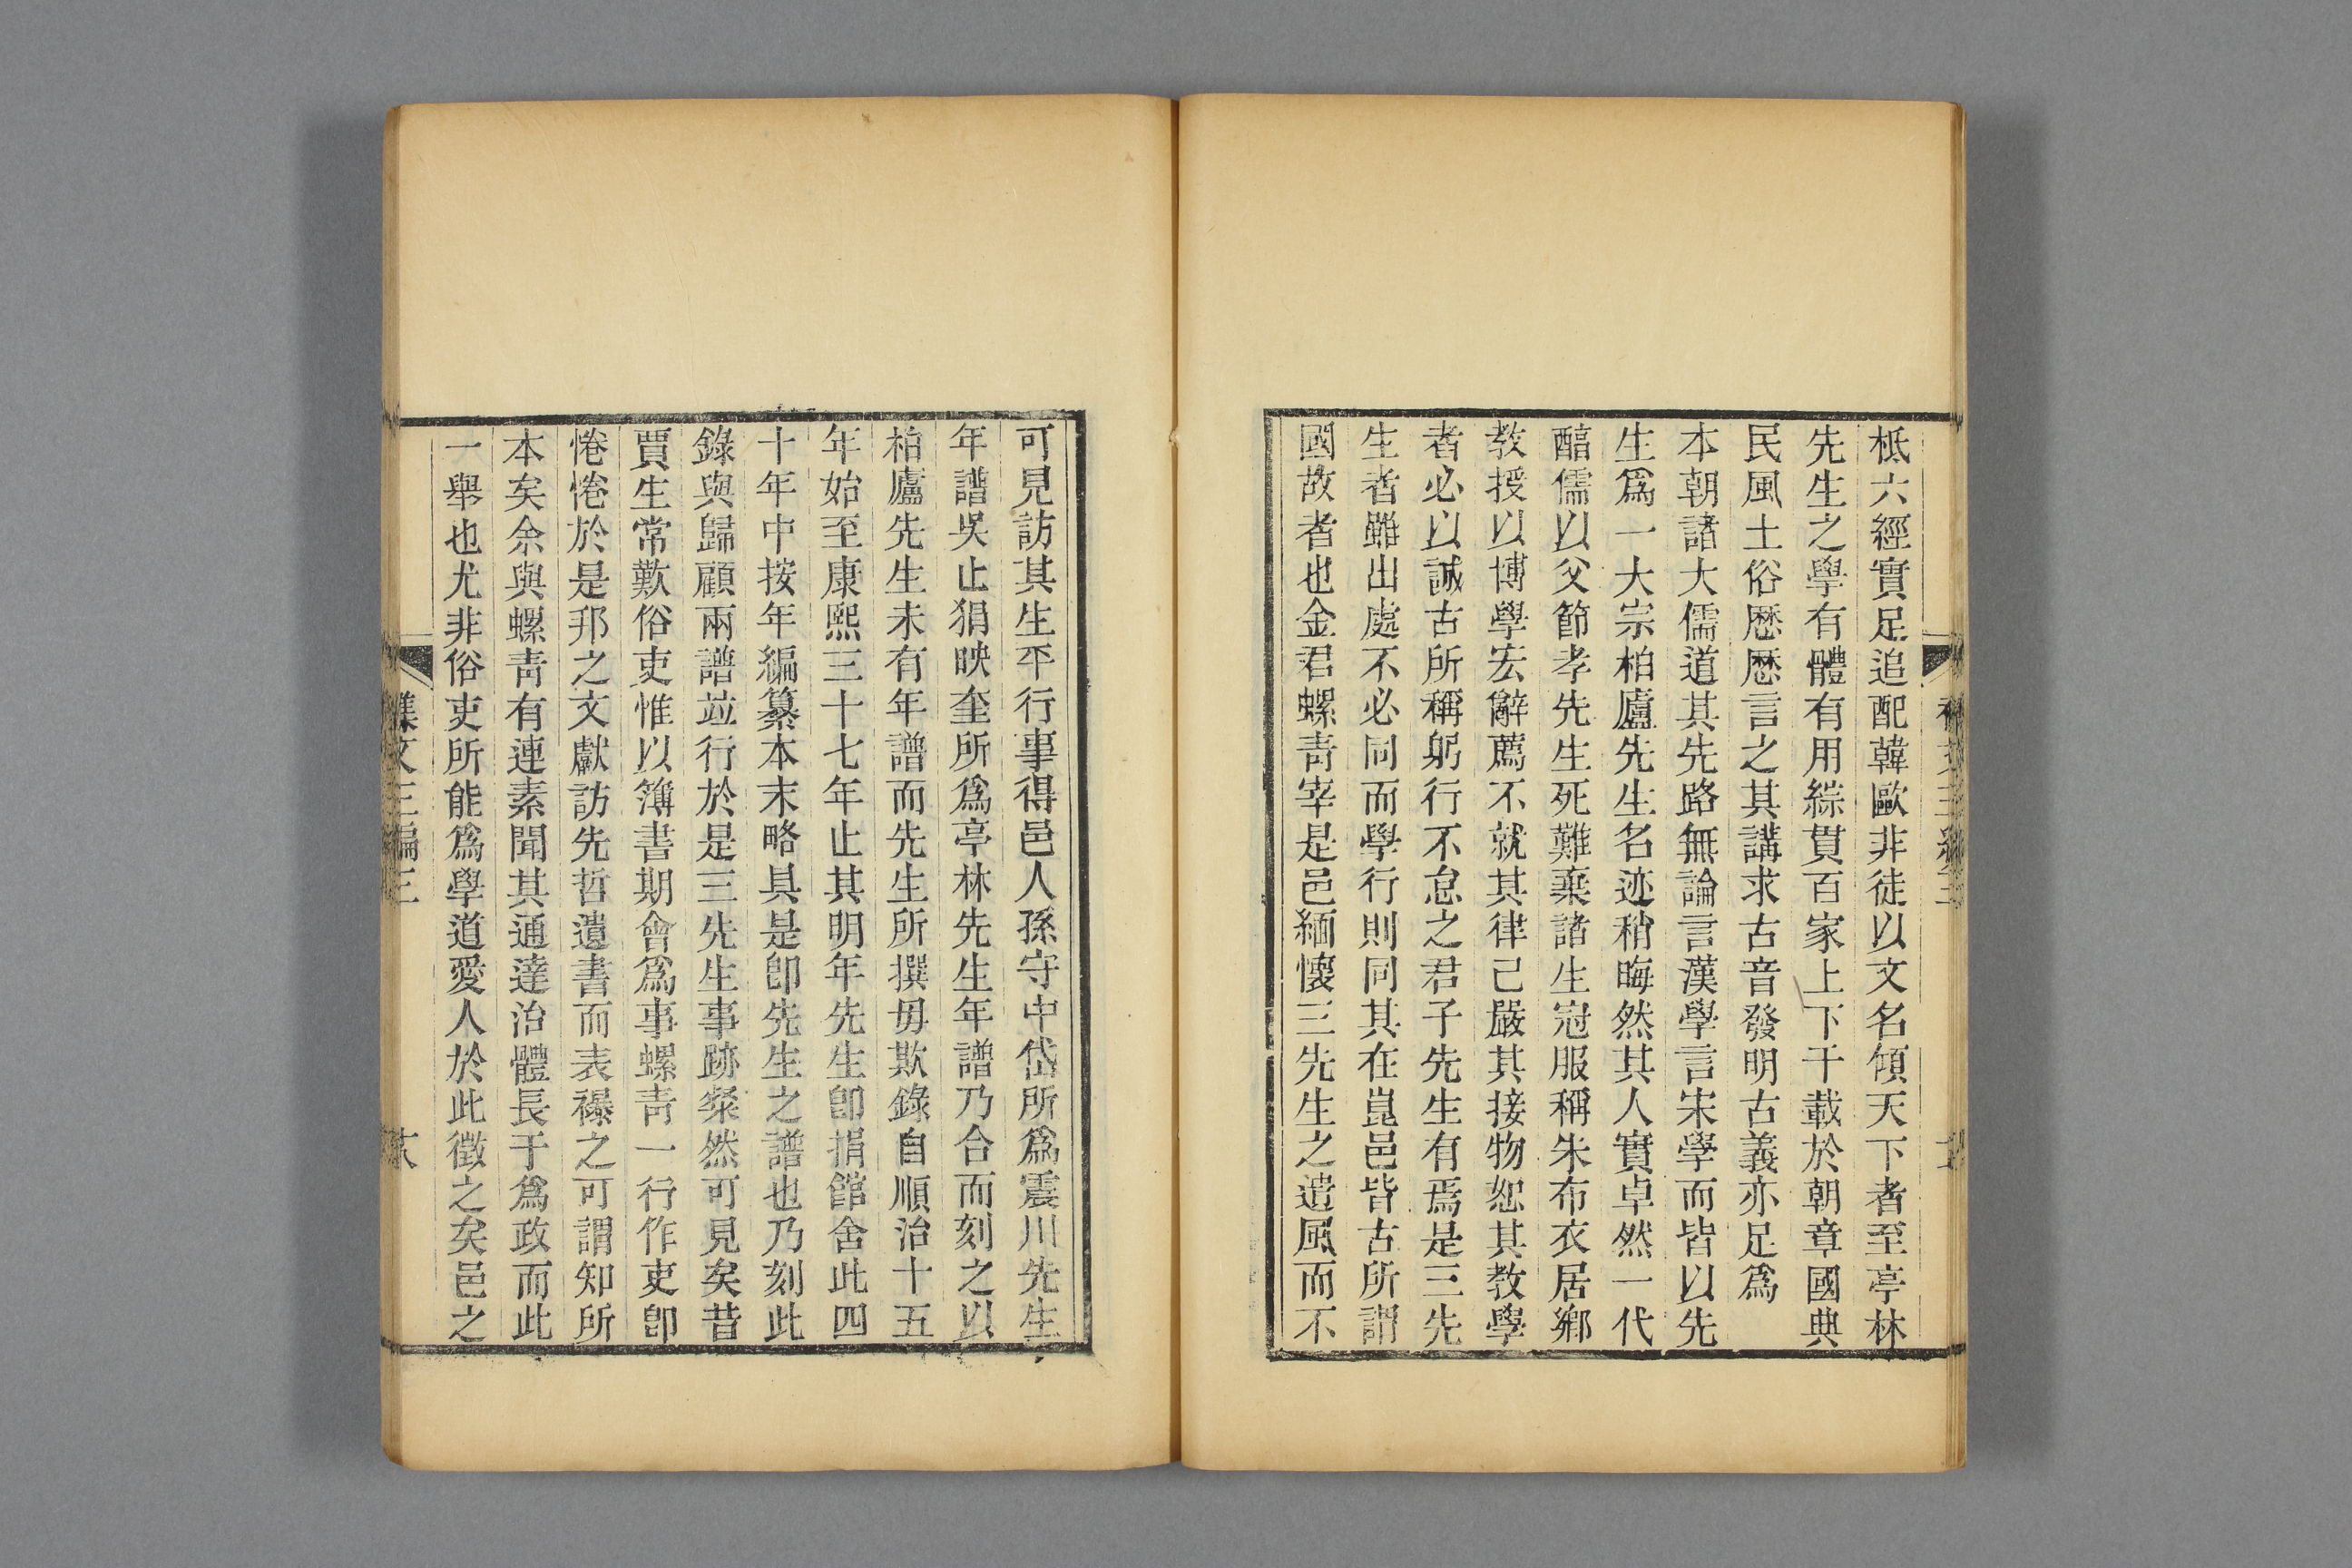 柢六經實足追配韓歐非徒以文名傾天下者至亭林
先生之學有體有用綜貫百家上下千載於朝章國典
民風土俗歷歷言之其講求古音發明古義亦足爲
本朝諸大儒道其先路無論言漢學言宋學而皆以先
生爲一大宗柏廬先生名迹稍晦然其人實卓然一代
醕儒以父節孝先生死難棄諸生冠服稱朱布衣居鄉
教授以博學宏辭薦不就其律己嚴其接物恕其教學
者必以誠古所稱躬行不怠之君子先生有焉是三先
生者雖出處不必同而學行則同其在崑邑皆古所謂
國故者也金君螺青宰是邑緬懷三先生之遺風而不
可見訪其生平行事得邑人孫守中岱所爲震川先生
年譜吳止狷映奎所爲亭林先生年譜乃合而刻之以
柏廬先生未有年譜而先生所撰毋欺錄自順治十五
年始至康熙三十七年止其明年先生卽捐館舍此四
十年中按年編纂本末略具是卽先生之譜也乃刻此
錄與歸顧兩譜竝行於是三先生事跡粲然可見矣昔
賈生常歎俗吏惟以簿書期會爲事螺青一行作吏卽
惓惓於是邦之文獻訪先哲遺書而表襮之可謂知所
本矣余與螺青有連素聞其通達治體長于爲政而此
一舉也尤非俗吏所能爲學道愛人於此徵之矣邑之
集文三編三